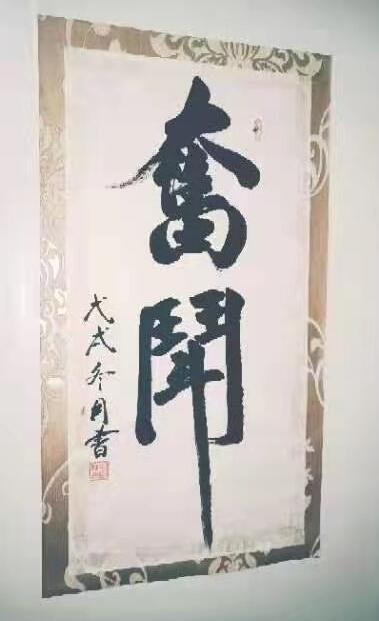 奮鬥
戊戌冬月書